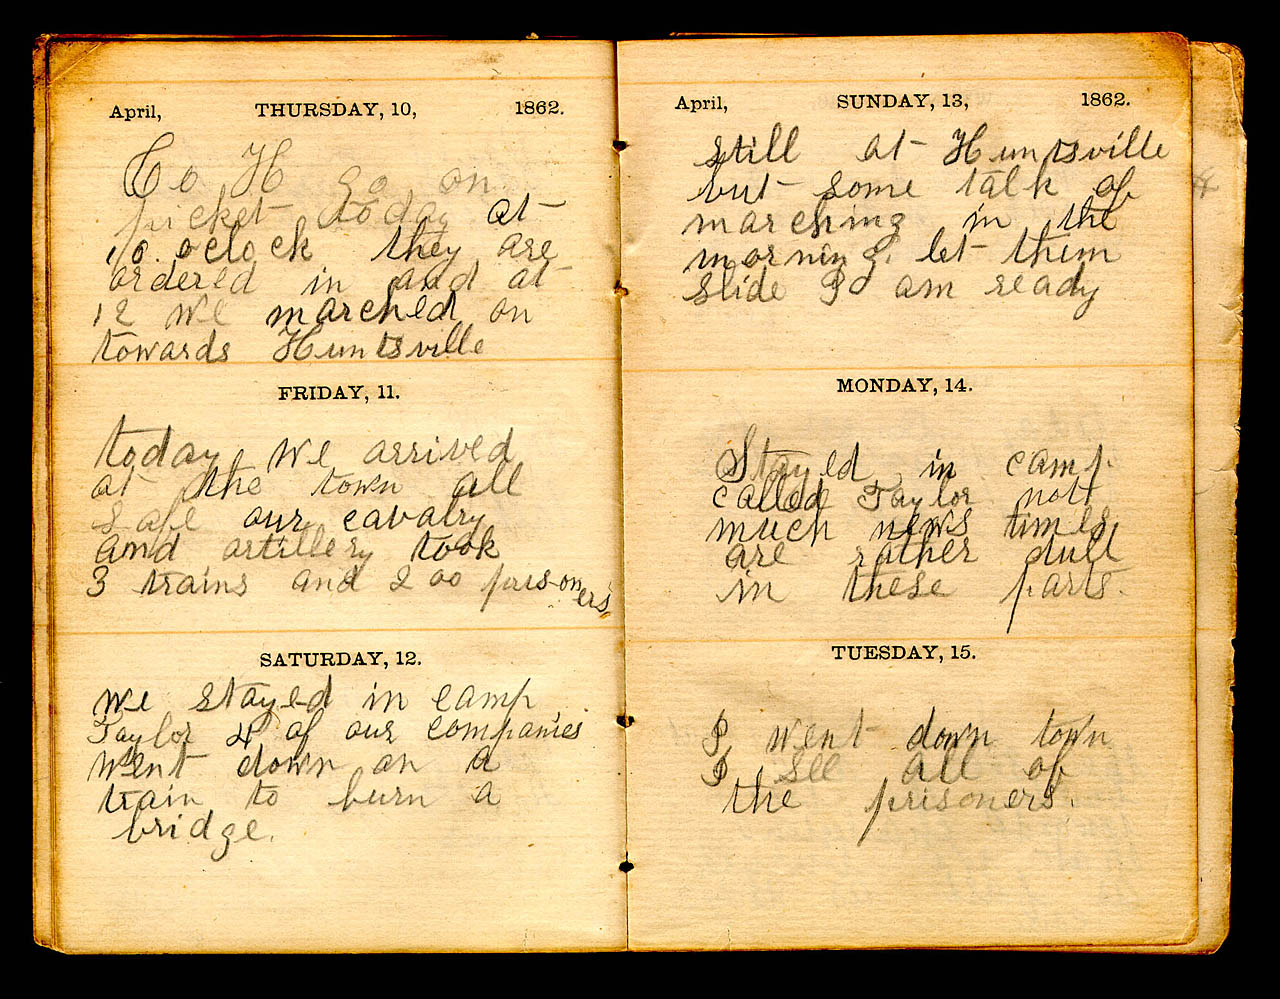 April, THURSDAY, 10, 1862.
Co H go on
picket today at
10. oclock they are
ordered in and at
12 we marched on
towards Huntsville
FRIDAY, 11.
today we arrived
at the town all
safe our cavalry
and artillery took
3 trains and 200 prisoners,
SATURDAY, 12.
we stayed in camp
Taylor 4 of our companies
went down on a
train to burn a
bridge.
April, SUNDAY, 13, 1862.
still at Huntsville
but some talk of
marching in the
morning. let them
slide I am ready
MONDAY, 14.
Stayed in camp
called Taylor not
much news times
are rather dull
in these parts.
TUESDAY, 15.
I went down town
I see all of
the prisoners.